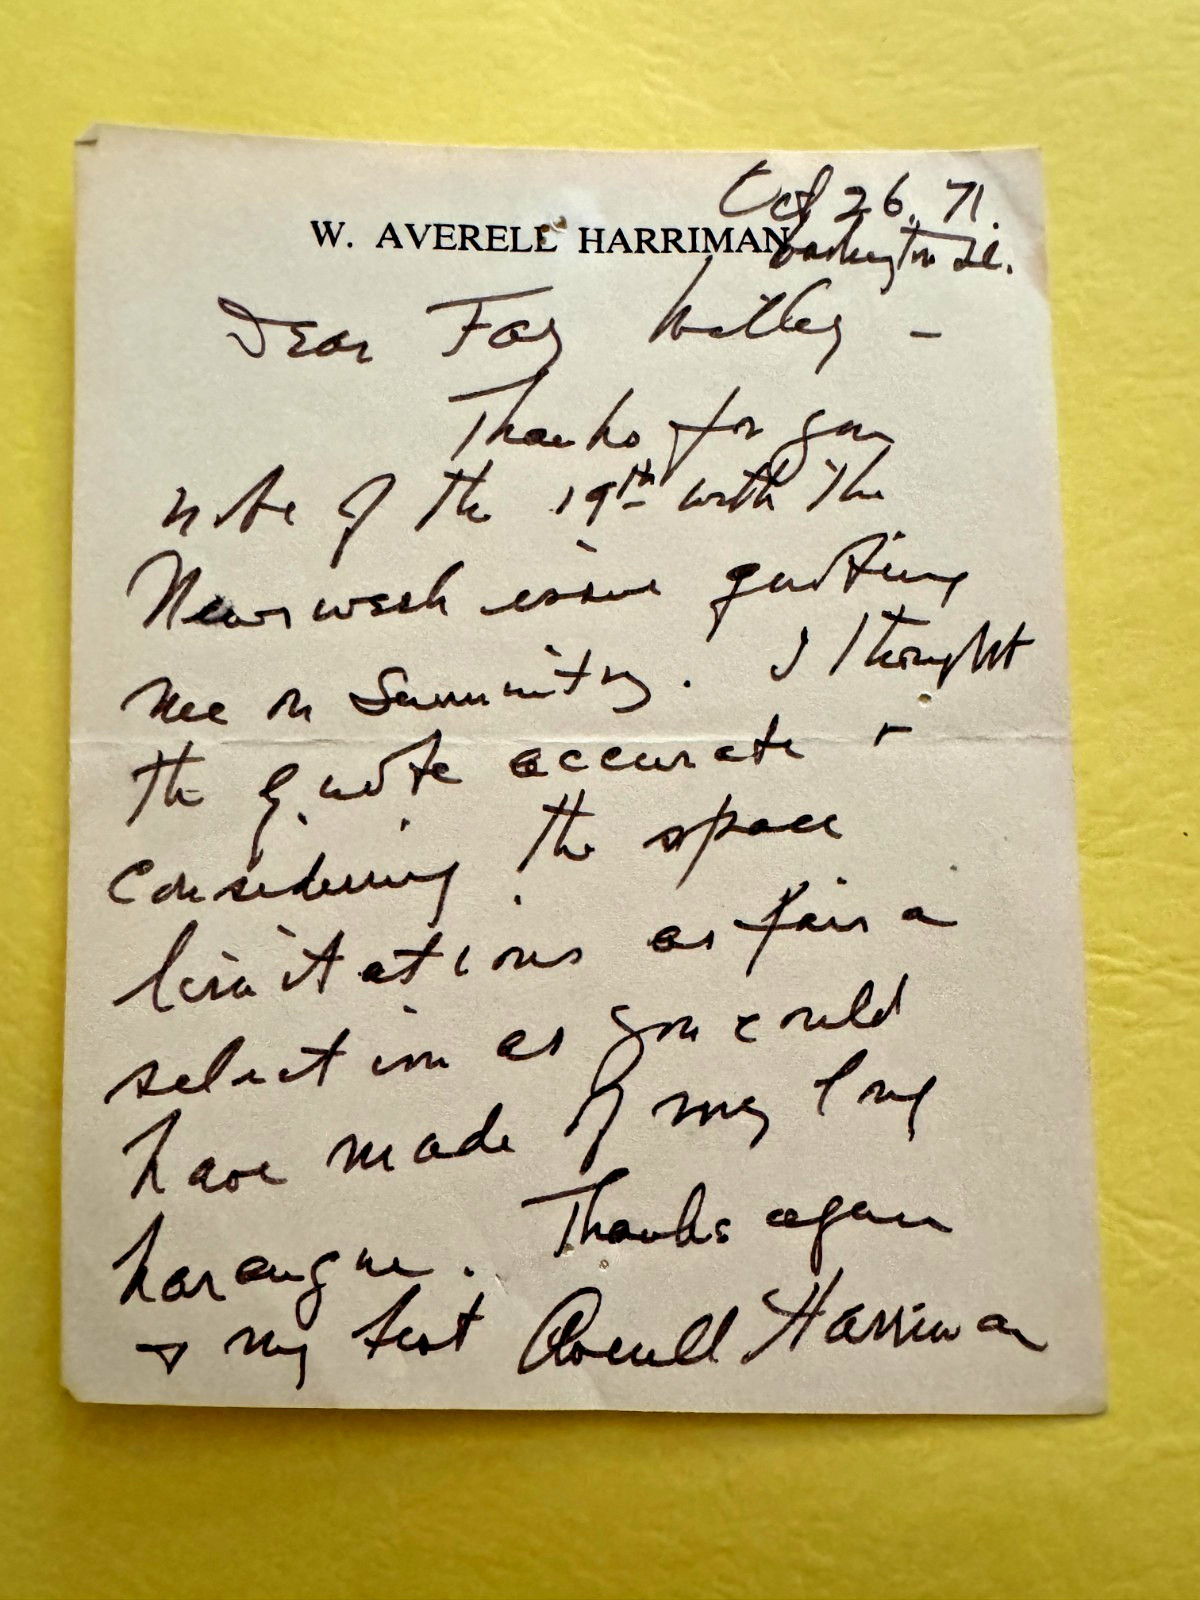 Oct 26. 71.
W. AVERELL HARRIMAN
Washington DC.
Dear Fay Willey –
Thanks for your
note of the 19th with the
Newsweek issue quoting
me on Summitry. I thought
the quote accurate +
considering the space
limitations as fair a
selection as you could
have made of my long
harangue. Thanks again
+ my best Averell Harriman